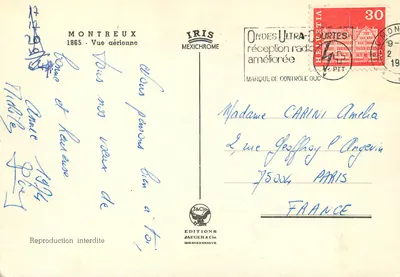 MONTREUX
1865 - Vue aérienne
IRIS
MEXICHROME
ONDES ULTRA-COURTES
réception radio
améliorée
MARQUE DE CONTRÔLE
HELVETIA
30
Nous pensons bien à toi,
Tous nos vœux de
bonne et heureuse
Année 1974
Madame CARINI Amelia
2, rue Geoffroy l'Angevin
75004 PARIS
FRANCE
EDITIONS
JAEGER & Cie
Reproduction interdite